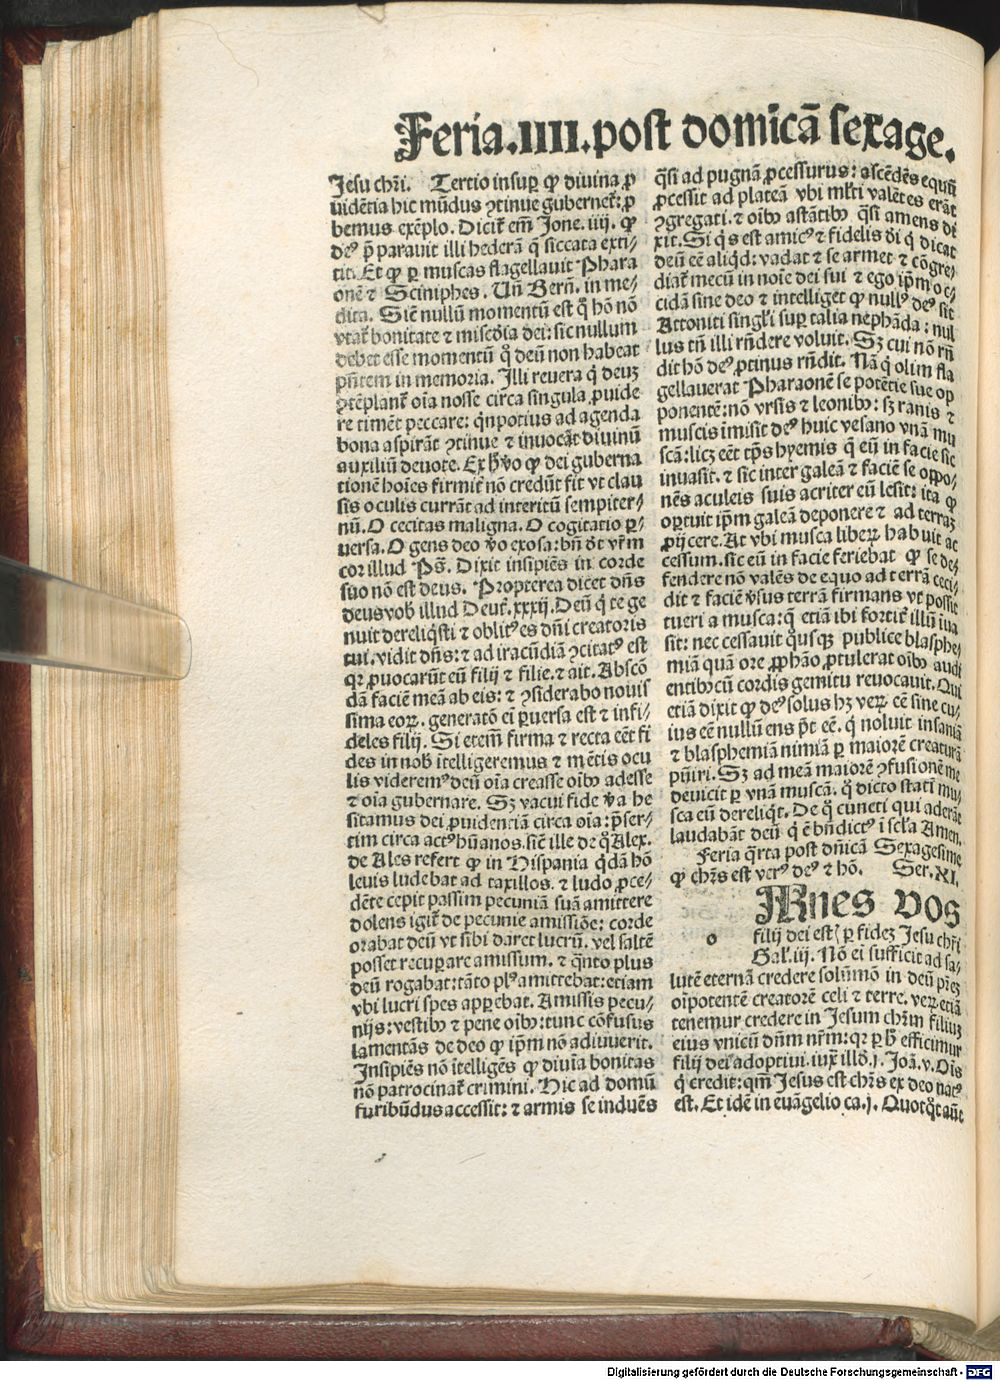 Feria.IIII.post domicã sexage.
Jesu chr̃i. Tertio insup̲ ꝙ diuina ꝓ
uidẽtia hic mũdus ꝯtinue gubernet̃: ꝓ
bemus exẽplo. Dicit̃ em̃ Jone. iiij. ꝙ
deꝰ p̃parauit illi hederã q̃ siccata exti-
tit. Et ꝙ ꝑ muscas flagellauit Phara
onẽ ⁊ Sciniphes. Uñ Bern̄. in me-
dita. Sic̃ nullũ momentũ est q̊ hõ nõ
vtat̃ bonitate ⁊ misc̃dia dei: sic nullum
debet esse momentũ q̊ deũ non habeat
p̃ñtem in memoria. Illi reuera q̇ deuꝫ
ꝯtẽplant̃ oĩa nosse circa singula ꝓuide
re timẽt peccare: q̃npotius ad agenda
bona aspirãt ꝯtinue ⁊ inuocãt diuinũ
auxiliũ deuote. Ex h̊ ꝟo ꝙ dei guberna
tionẽ hoĩes firmit̃ nõ credũt fit vt clau
sis oculis currãt ad interitũ sempiter-
nũ. O cecitas maligna. O cogitatio ꝑ-
uersa. O gens deo ꝟo exosa: bñ d̃t vr̃m
cor illud Ps̃. Dixit insipiẽs in corde
suo nõ est deus. Propterea dicet dñs
deus vob̃ illud Deut̃. xxxij. Deũ q̇ te ge
nuit dereliq̇sti ⁊ oblitꝰ es dñi creatoris
tui. vidit dñs: ⁊ ad iracũdiã ꝯcitatꝰ est
qꝛ ꝓuocarũt eũ filij ⁊ filie. ⁊ ait. Abscõ
dã faciẽ meã ab eis: ⁊ ꝯsiderabo nouis
sima eoꝝ. generatõ em̃ ꝑuersa est ⁊ infi-
deles filij. Si etem̃ firma ⁊ recta eẽt fi
des in nob̃ ĩtelligeremus ⁊ mẽtis ocu
lis videremꝰ deũ oĩa creasse oĩbꝫ adesse
⁊ oĩa gubernare. Sꝫ vacui fide ꝟa he
sitamus dei ꝓuidenciã circa oĩa: p̃ser-
tim circa actꝰ hũanos. sic̃ ille de q̊ Alex.
de Ales refert ꝙ in Hispania q̇dã hõ
leuis ludebat ad taxillos. ⁊ ludo ꝓce-
dẽte cepit passim pecuniã suã amittere
dolens igit̃ de pecunie amissiõe: corde
orabat deũ vt sibi daret lucrũ. vel saltẽ
posset recuꝑare amissum. ⁊ q̃nto plus
deũ rogabat: tãto plꝰ amittebat: etiam
vbi lucri spes apꝑebat. Amissis pecu-
nijs: vestibꝫ ⁊ pene oĩbꝫ: tunc cõfusus
lamentãs de deo ꝙ ip̃m nõ adiuuerit.
Insipiẽs nõ ĩtelligẽs ꝙ diuĩa bonitas
nõ patrocinat̃ crimini. Hic ad domũ
furibũdus accessit: ⁊ armis se induẽs
q̃si ad pugnã ꝓcessurus: ascẽdẽs equũ
ꝓcessit ad plateã vbi ml̃ti valẽtes erãt
ꝯgregati. ⁊ oĩbꝫ astãtibꝫ q̃si amens di
xit. Si q̇s est amicꝰ ⁊ fidelis d̃i q̇ dicat
deũ eẽ aliq̇d: vadat ⁊ se armet ⁊ cõgre-
diat̃ mecũ in noĩe dei sui ⁊ ego ip̃m oc-
cidã sine deo ⁊ intelliget ꝙ nullꝰ deꝰ sit
Attoniti singl̃i sup̲ talia nephãda: nul
lus tñ illi rñdere voluit. Sꝫ cui nõ rñ
dit hõ deꝰ ꝓtinus rñdit. Nã q̇ olim fla
gellauerat Pharaonẽ se potẽtie sue op
ponentẽ: nõ vrsis ⁊ leonibꝫ: sꝫ ranis ⁊
muscis ĩmisit deꝰ huic vesano vnã mu
scã: licꝫ eẽt tp̃s hyemis q̃ eũ in facie sic
inuasit. ⁊ sic inter galeã ⁊ faciẽ se oppo-
nẽs aculeis suis acriter eũ lesit: ita ꝙ
oꝑtuit ip̃m galeã deponere ⁊ ad terraꝫ
ꝓijcere. At vbi musca liberꝝ habuit ac
cessum. sic eũ in facie feriebat ꝙ se de-
fendere nõ valẽs de equo ad terrã ceci-
dit ⁊ faciẽ ꝟsus terrã firmans vt possit
tueri a musca: q̃ etiã ibi fortit̃ illũ ĩua
sit: nec cessauit q̊usqꝫ publice blasphe-
miã quã ore ꝓphão ꝓtulerat oĩbꝫ audi
entibꝫ cũ cordis gemitu reuocauit. Qui
etiã dixit ꝙ deꝰ solus hꝫ verꝝ eẽ sine cu-
ius eẽ nullũ ens p̃t eẽ. q̇ noluit insaniã
⁊ blasphemiã nimiã ꝑ maiorẽ creaturã
pũiri. Sꝫ ad meã maiorẽ ꝯfusionẽ me
deuicit ꝑ vnã muscã. q̊ dicto statĩ mu-
sca eũ dereliq̇t. De q̊ cuncti qui aderãt
laudabãt deũ q̇ ẽ bñdictꝰ ĩ scl̃a Amen.
Feria q̃rta post dñicã Sexagesime
ꝙ chr̃s est verꝰ deꝰ ⁊ hõ. Ser. XI.
o MNes vos
filij dei est(ꝑ fidez Jesu chr̃i
Gal̃. iij. Nõ em̃ sufficit ad sa-
lutẽ eternã credere solũmõ in deũ pr̃eꝫ
oĩpotentẽ creatorẽ celi ⁊ terre. verꝝ etiã
tenemur credere in Jesum chr̃m filiuꝫ
eius vnicũ dñm nr̃m: qꝛ ꝑ h̊ efficimur
filij dei adoptiui. iux̃ illd̃. j. Joã. v. Oĩs
q̇ credit: qm̃ Jesus est chr̃s ex deo natꝰ
est. Et idẽ in euãgelio ca. j. Quotq̊t aũt
Digitalisierung gefördert durch die Deutsche Forschungsgemeinschaft - DFG